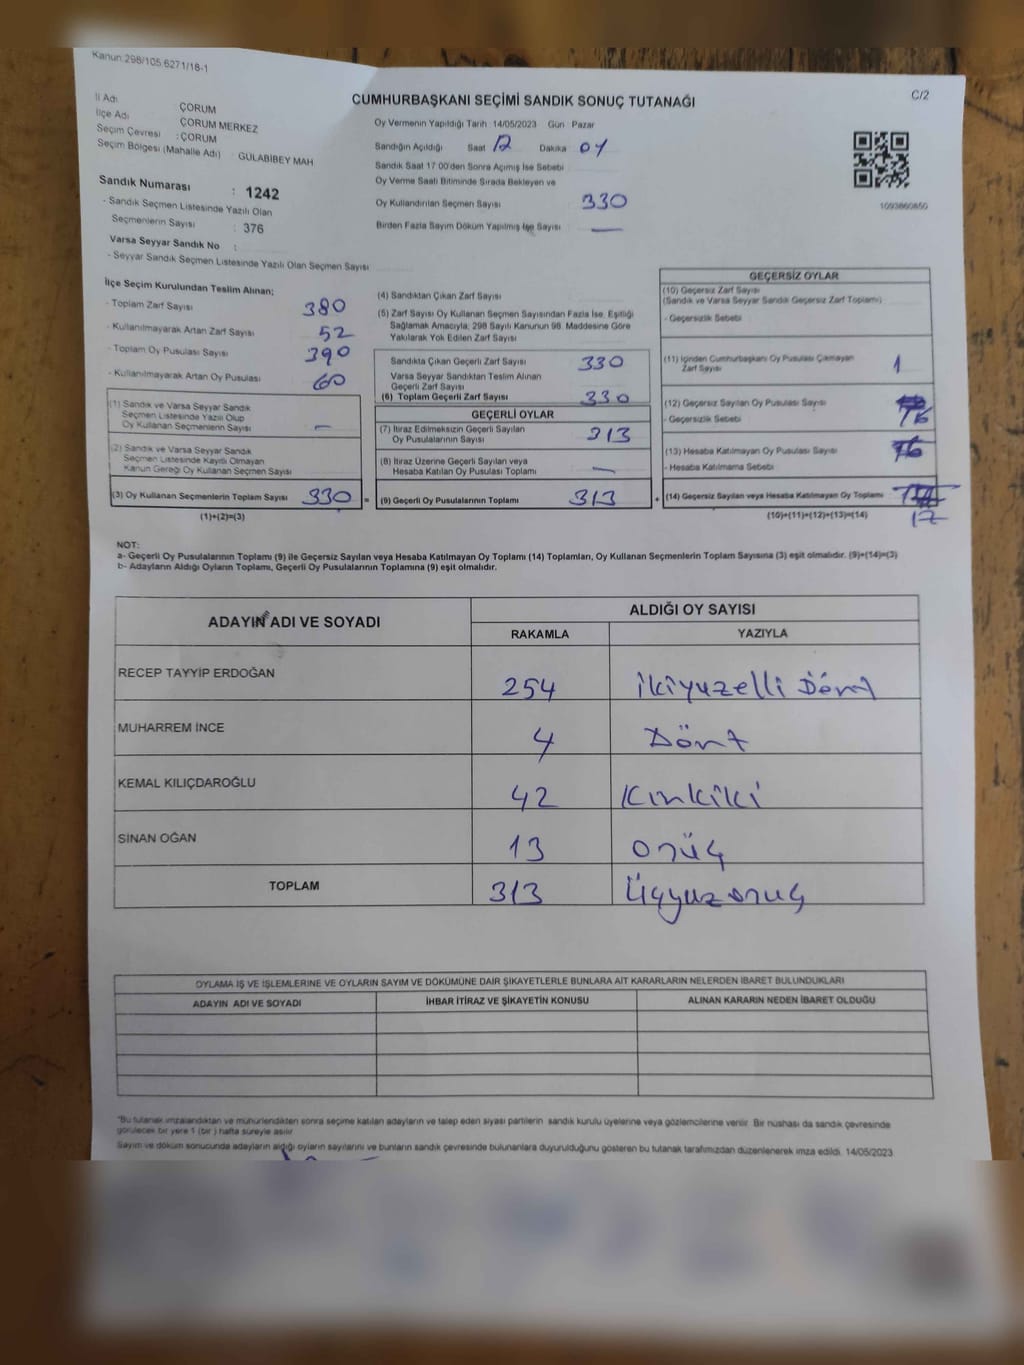 Kanun:298/105.6271/18-1
C/2
CUMHURBAŞKANI SEÇİMİ SANDIK SONUÇ TUTANAĞI
İl Adı ÇORUM
İlçe Adı ÇORUM MERKEZ
Seçim Çevresi : ÇORUM
Seçim Bölgesi (Mahalle Adı) : GÜLABİBEY MAH
Sandık Numarası : 1242
- Sandık Seçmen Listesinde Yazılı Olan
Seçmenlerin Sayısı : 376
Varsa Seyyar Sandık No :
- Seyyar Sandık Seçmen Listesinde Yazılı Olan Seçmen Sayısı
Oy Vermenin Yapıldığı Tarih 14/05/2023 Gün Pazar
Sandığın Açıldığı Saat 17 Dakika 04
Sandık Saat 17:00'den Sonra Açımış İse Sebebi
Oy Verme Saati Bitiminde Sırada Bekleyen ve
Oy Kullandırılan Seçmen Sayısı 330
Birden Fazla Sayım Döküm Yapılmış İse Sayısı —
1093860850
İlçe Seçim Kurulundan Teslim Alınan;
- Toplam Zarf Sayısı 380
- Kullanılmayarak Artan Zarf Sayısı 52
- Toplam Oy Pusulası Sayısı 390
- Kullanılmayarak Artan Oy Pusulası 60
(1) Sandık ve Varsa Seyyar Sandık
Seçmen Listesinde Yazılı Olup
Oy Kullanan Seçmenlerin Sayısı —
(2) Sandık ve Varsa Seyyar Sandık
Seçmen Listesinde Kayıtlı Olmayan
Kanun Gereği Oy Kullanan Seçmen Sayısı
(3) Oy Kullanan Seçmenlerin Toplam Sayısı 330 =
(1)+(2)=(3)
(4) Sandıktan Çıkan Zarf Sayısı
(5) Zarf Sayısı Oy Kullanan Seçmen Sayısından Fazla İse, Eşitliği
Sağlamak Amacıyla; 298 Sayılı Kanunun 98. Maddesine Göre
Yakılarak Yok Edilen Zarf Sayısı
Sandıkta Çıkan Geçerli Zarf Sayısı 330
Varsa Seyyar Sandıktan Teslim Alınan
Geçerli Zarf Sayısı
(6) Toplam Geçerli Zarf Sayısı 330
GEÇERLİ OYLAR
(7) İtiraz Edilmeksizin Geçerli Sayılan
Oy Pusulalarının Sayısı 313
(8) İtiraz Üzerine Geçerli Sayılan veya
Hesaba Katılan Oy Pusulası Toplamı —
(9) Geçerli Oy Pusulalarının Toplamı 313 +
GEÇERSİZ OYLAR
(10) Geçersiz Zarf Sayısı
(Sandık ve Varsa Seyyar Sandık Geçersiz Zarf Toplamı)
- Geçersizlik Sebebi
(11) İçinden Cumhurbaşkanı Oy Pusulası Çıkmayan
Zarf Sayısı 1
(12) Geçersiz Sayılan Oy Pusulası Sayısı
- Geçersizlik Sebebi 16
(13) Hesaba Katılmayan Oy Pusulası Sayısı
- Hesaba Katılmama Sebebi
(14) Geçersiz Sayılan veya Hesaba Katılmayan Oy Toplamı
(10)+(11)+(12)+(13)=(14) 17
NOT:
a- Geçerli Oy Pusulalarının Toplamı (9) ile Geçersiz Sayılan veya Hesaba Katılmayan Oy Toplamı (14) Toplamları, Oy Kullanan Seçmenlerin Toplam Sayısına (3) eşit olmalıdır. (9)+(14)=(3)
b- Adayların Aldığı Oyların Toplamı, Geçerli Oy Pusulalarının Toplamına (9) eşit olmalıdır.
ADAYIN ADI VE SOYADI ALDIĞI OY SAYISI
RAKAMLA YAZIYLA
RECEP TAYYİP ERDOĞAN 254 ikiyuzelli Dört
MUHARREM İNCE 4 Dört
KEMAL KILIÇDAROĞLU 42 Kırkiki
SİNAN OĞAN 13 onüç
TOPLAM 313 Üçyuzonuç
OYLAMA İŞ VE İŞLEMLERİNE VE OYLARIN SAYIM VE DÖKÜMÜNE DAİR ŞİKAYETLERLE BUNLARA AİT KARARLARIN NELERDEN İBARET BULUNDUKLARI
ADAYIN ADI VE SOYADI İHBAR İTİRAZ VE ŞİKAYETİN KONUSU ALINAN KARARIN NEDEN İBARET OLDUĞU
"Bu tutanak imzalandıktan ve mühürlendikten sonra seçime katılan adayların ve talep eden siyasi partilerin sandık kurulu üyelerine veya gözlemcilerine verilir. Bir nüshası da sandık çevresinde
görülecek bir yere 1 (bir ) hafta süreyle asılır
Sayım ve döküm sonucunda adayların aldığı oyların sayılarını ve bunların sandık çevresinde bulunanlara duyurulduğunu gösteren bu tutanak tarafımızdan düzenlenerek imza edildi. 14/05/2023